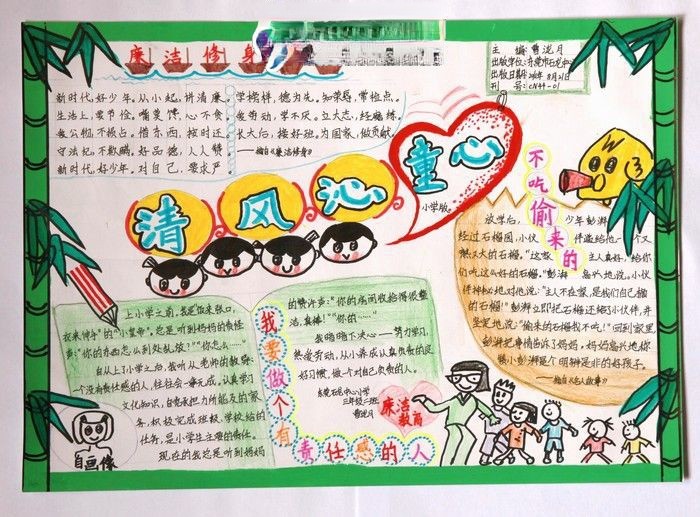 廉洁修身
主 编:曹泷月
出版日期:
刊 号:CN44-01
新时代,好少年。从小起,讲清廉。
生活上,要节俭。嘴莫馋,心不贪。
公物,不损占。借东西,按时还。
守法纪,不欺瞒。好品德,人人赞。
新时代,好少年。对自己,要求严。
学榜样,德为先。知荣辱,常检点。
爱劳动,学不厌。立大志,经磨练。
长大后,接好班。为国家,做贡献。
——摘自《廉洁修身》
清风沁童心
小学版
不吃偷来的
放学后,
少年彭湃
经过石榴园,小伙
伴溜给他
个又
红又大的石榴。"这家
主人真好,给你
们吃这么好的石榴。"彭湃
高兴地说。小伙
伴神秘地对他说:"主人不在家,是我们自己摘
的石榴!"彭湃立即把石榴还给小伙伴,并
坚定地说:"偷来的石榴我不吃!"回到家里
彭湃把事情告诉了妈妈,妈妈高兴地称
赞小彭湃是个明辨是非的好孩子。
——摘自《名人故事》
我要做个有
责任感的人
上小学之前,我是饭来张口,
衣来伸手"的"小皇帝",总是听到妈妈的责怪
声:"你的东西怎么到处乱放?""你怎么……"
自从上了小学之后,我听从老师的教导,
一个没有责任感的人,往往会一事无成。认真学习
文化知识,自觉承担力所能及的家
务,积极完成班级、学校给的
任务,是小学生主要的责任。
现在的我总是听到妈妈
的赞许声:"你的房间收拾得很整
洁,真棒!""你的……"
我暗暗下决心——努力学习,
热爱劳动,从小养成认真负责的良
好习惯,做一个对自己负责的人。
东莞石龙中心小学
三年级二班
曹泷月
廉洁
教育
自画像